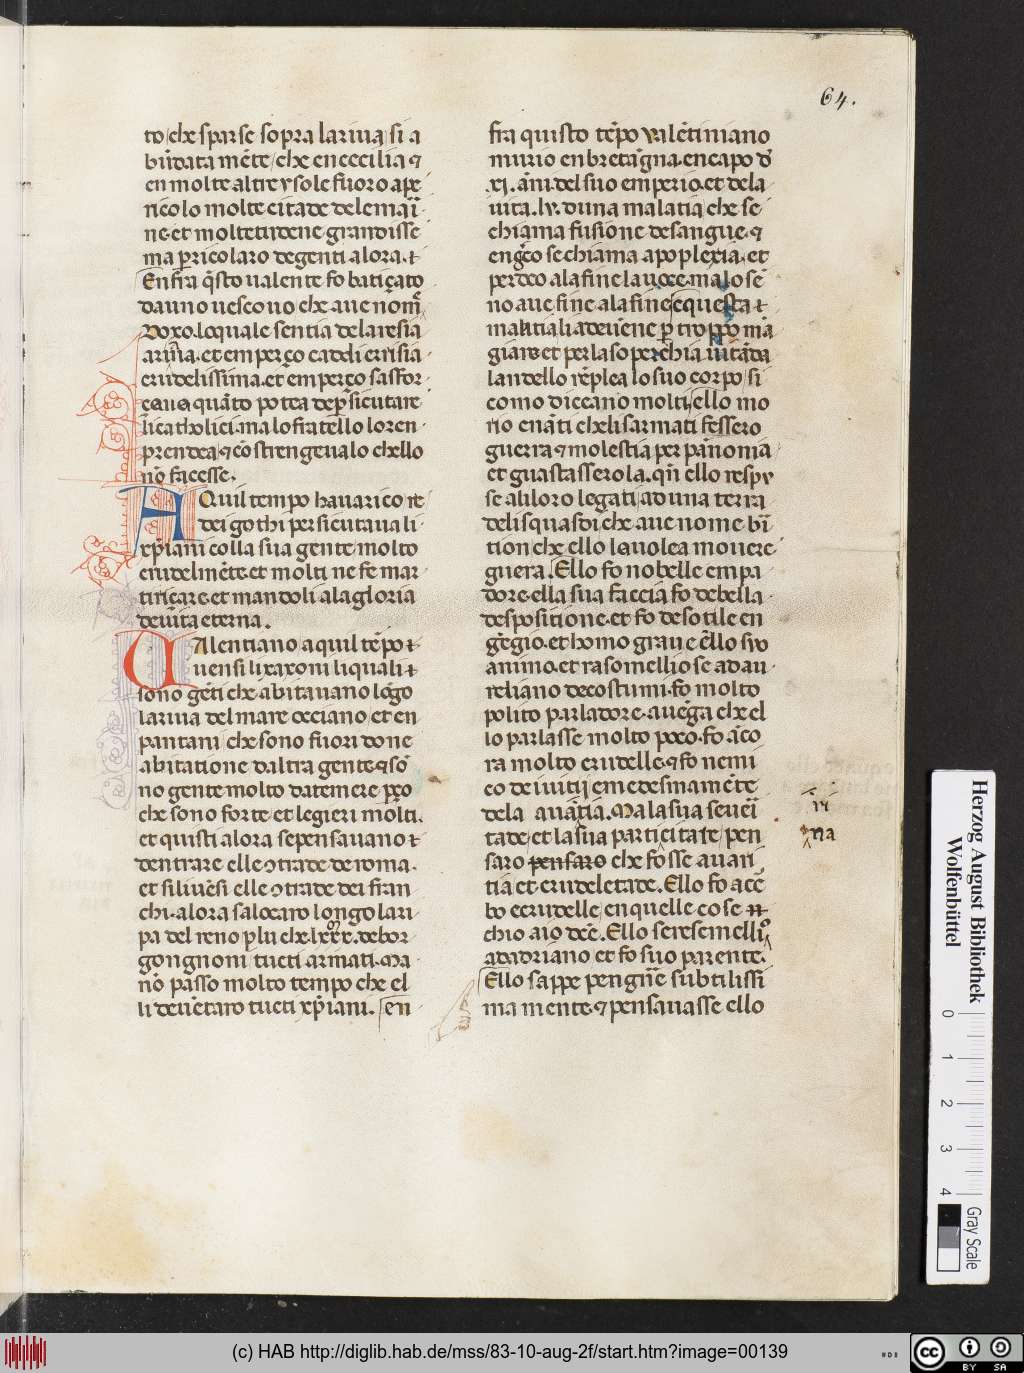 64.
to che sparse sopra la riua si a
bũdata mẽte che en cecilia ⁊
en molte altre ysole fuoro a pe
ricolo molte citade dele maĩ
ne et molte tirene grandisse
ma ꝑricolaro de genti alora. ⁊
En fra q̃sto ualente fo baticato
da uno uescouo che aue nom̃
loquale sentia dela resia
arriãa. et emperço caddi en risia
crudelissima. et emperço sasfor
çaua quãto potea de ꝑsicutare
li catholici ma lo fratello loren
prendea ⁊ cõstrengeualo chello
nõ facesse.
AQuil tempo hauarico re
dei gothi persicutaua li
xp̃iani colla sua gente molto
crudelmẽte et molti ne fe mar
tiriçare et mandoli ala gloria
de uita eterna.
UAlentiano aquil tẽpo ⁊
uensi li saxoni li quali ⁊
sono gẽti che abitauano lõgo
la riua del mare occiano et en
pantani che sono fuori do ne
abitatione daltra gente ⁊ sõ
no gente molto da temere ꝑço
che sono forte et legieri molti.
et quisti alora se pensauano ⁊
dentrare elle ɔtrade de roma.
et si li uẽsi elle ɔtrade dei fran
chi. alora salocaro longo la ri
pa del reno plu che lxxx. de bor
gongnoni tucti armati. Ma
nõ passo molto tempo che el
li deuẽtaro tucti xp̃iani. en
fra quisto tẽpo Valẽtiniano
murio en bretãgna. en capo d
.xj. ãni del suo emperio. et dela
uita. lv. duna malatia che se
chiama fusione de sangue. ⁊
en grẽco se chiama apoplexia. et
perdeo ala fine la uoce. ma lo sẽ
no aue fine ala fine e questa ⁊
malitia li adeuẽne ꝑ troppo mã
giare et per laso perchia uitãda
landello rẽplea lo suo corpo si
como diceano molti. ello mo
rio enãti che li sarmati fessero
guerra ⁊ molestia per pãnomia
et guastasserola. qñ ello respu
se ali loro legati ad una terra
deli squasdi che aue nome bĩ
tion che ello la uolea mouere
guera. Ello fo nobelle empa
dore. ella sua faccia fo de bella
despositione. et fo de sotile en
gẽgio. et homo graue ẽllo suo
animo. et rasomelliose ad au
reliano de costumi. fo molto
polito parladore. auẽga che el
lo parlasse molto poco. fo ãco
ra molto crudelle. ⁊ fo nemi
co de uitij em edesmamẽte
dela auãtia. Ma la sua seueri
tade. et la sua particitate pen
saro pensaro che fosse auari
tia et crudeletade. Ello fo acẽ
bo e crudelle en quelle cose
chio aio dcẽ. Ello se resemellio
ad adriano et fo suo parente.
Ello sappe pengñe subtilissi
ma mente. ⁊ pensauasse ello
ri
na
Herzog August Bibliothek
Wolfenbüttel
0 1 2 3 4
Gray Scale
(c) HAB http://diglib.hab.de/mss/83-10-aug-2f/start.htm?image=00139
cc BY SA